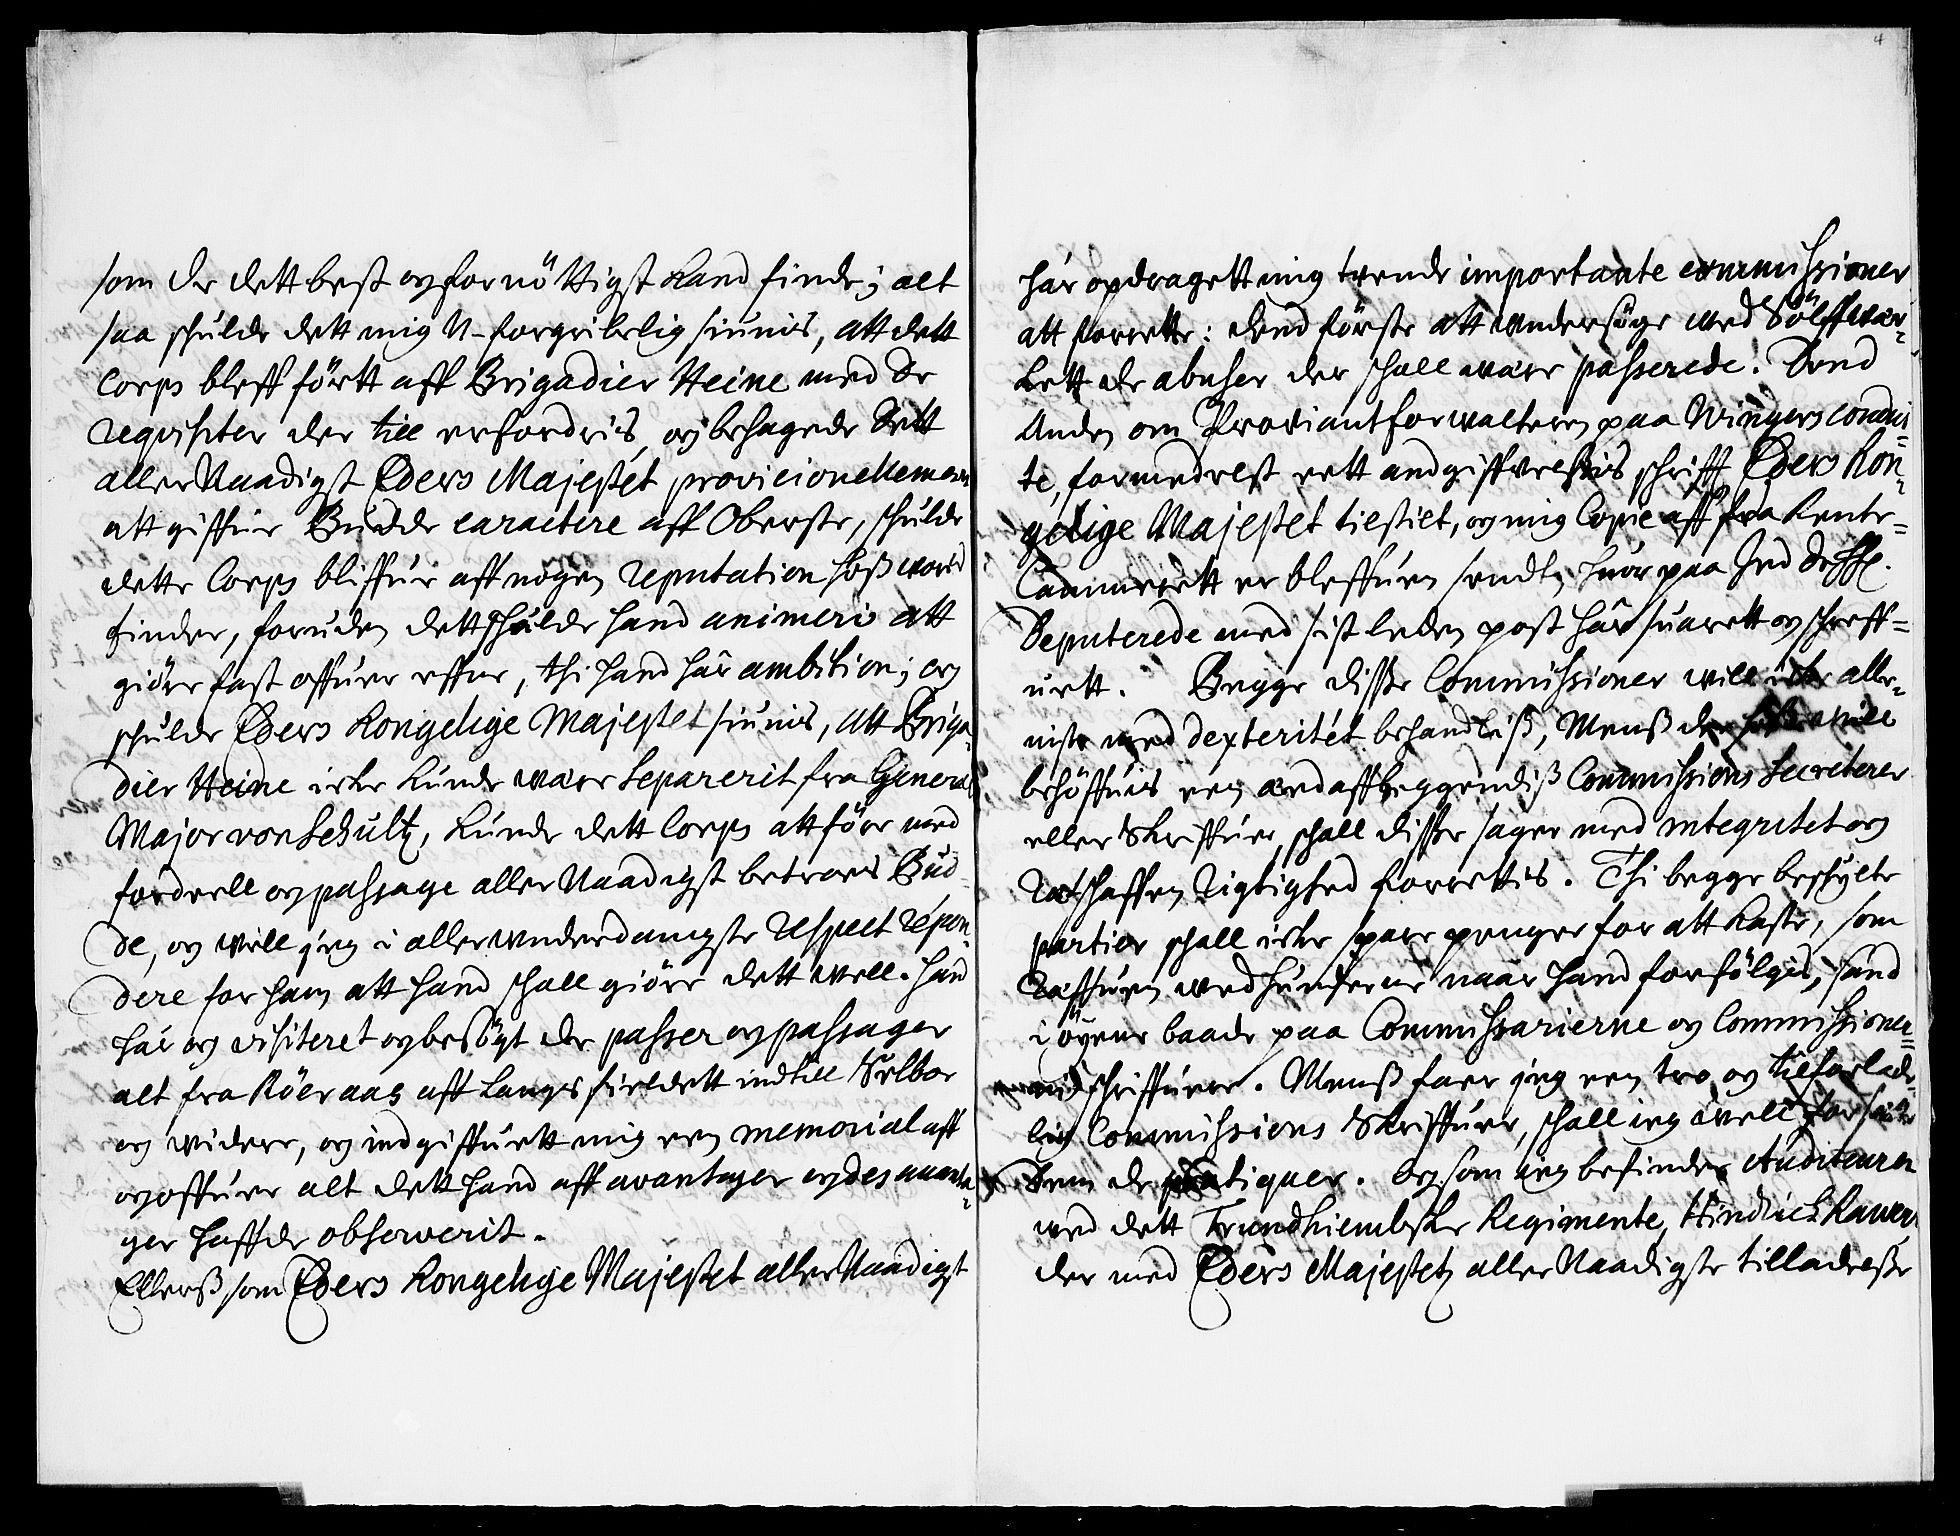 som De dett best og fornöttigst kand finde; alt
saa schulde dett mig U-forgribelig siunis, att dett
Corps bleff förtt aff Brigadier Heine med de
requisiter der till erfordris, og behagede dett
aller Naadigst Eders Majestét provicionellement
att giffue Budde caractere aff Oberste, schulde
dette Corps bliffue aff nogen reputation hoss woris
finder, foruden dett schulde hand animeris att
giöre fast offuer effne, thi hand hâr ambition; og
schulde Eders Kongelige Majestet siunis, att Briga-
dier Heine icke kunde være separerit fra General
Major von Schultz, kunde dett Corps att före med
fordeell og passage aller Naadigst betroes Bud-
de, og will jeg i allerunderdanigste respect répon-
dere for ham att hand schall giöre dett well. Hand
hâr og visiteret og besögt de passer og passager
alt fra Röeraas aff langs fieldett indtill Selboe
og widere, og indgiffuett mig een memorial aff
og offuer alt dett hand aff avantager og desauanta-
ger haffde obserwerit.
Ellerss som Eders Kongelige Majestet aller Naadigst
hâr opdragett mig tvende importante commissioner
att forrette: Dend förste att undersöge wed Sölffwer-
kett de abuser der schall være passerede. Dend
Anden om Proviantforwalteren paa Wingers condui-
te, formedelst eett andgiffvelsis schrifft Eders Kon-
gelige Majestet tilstilet, og mig Copie aff fra Rente-
Cammerett er bleffuen sendt, huor paa Ieg de HH.
Deputerede med sist leden post hâr suarett og schreff-
uett. Begge disse Commissioner will icke aller-
niste med dexteritét behandliss, Menss der will
behöffuis een æed aff beggendiss Commissions Secreterer
eller Skriffuer, schall disse sager med integritet og
Retschaffen Rigtighed forrettis. Thi begge beschylte
partier schall icke spare penger for att kaste, som
Ræffuen wed hunderne naar hand forfölgis, sand
i öyene baade paa Commissarierne og Commissionens
schriffuere. Menss faer jeg een tro og tilforlade-
lig Commissions Skriffuer, schall ieg well
Dem de pratiquer. Og som ieg befinder Auditeuren
wed dett Trundhiembske Regimente, Hindrick Rawert,
der med Eders Majestetz aller Naadigste tilladelse